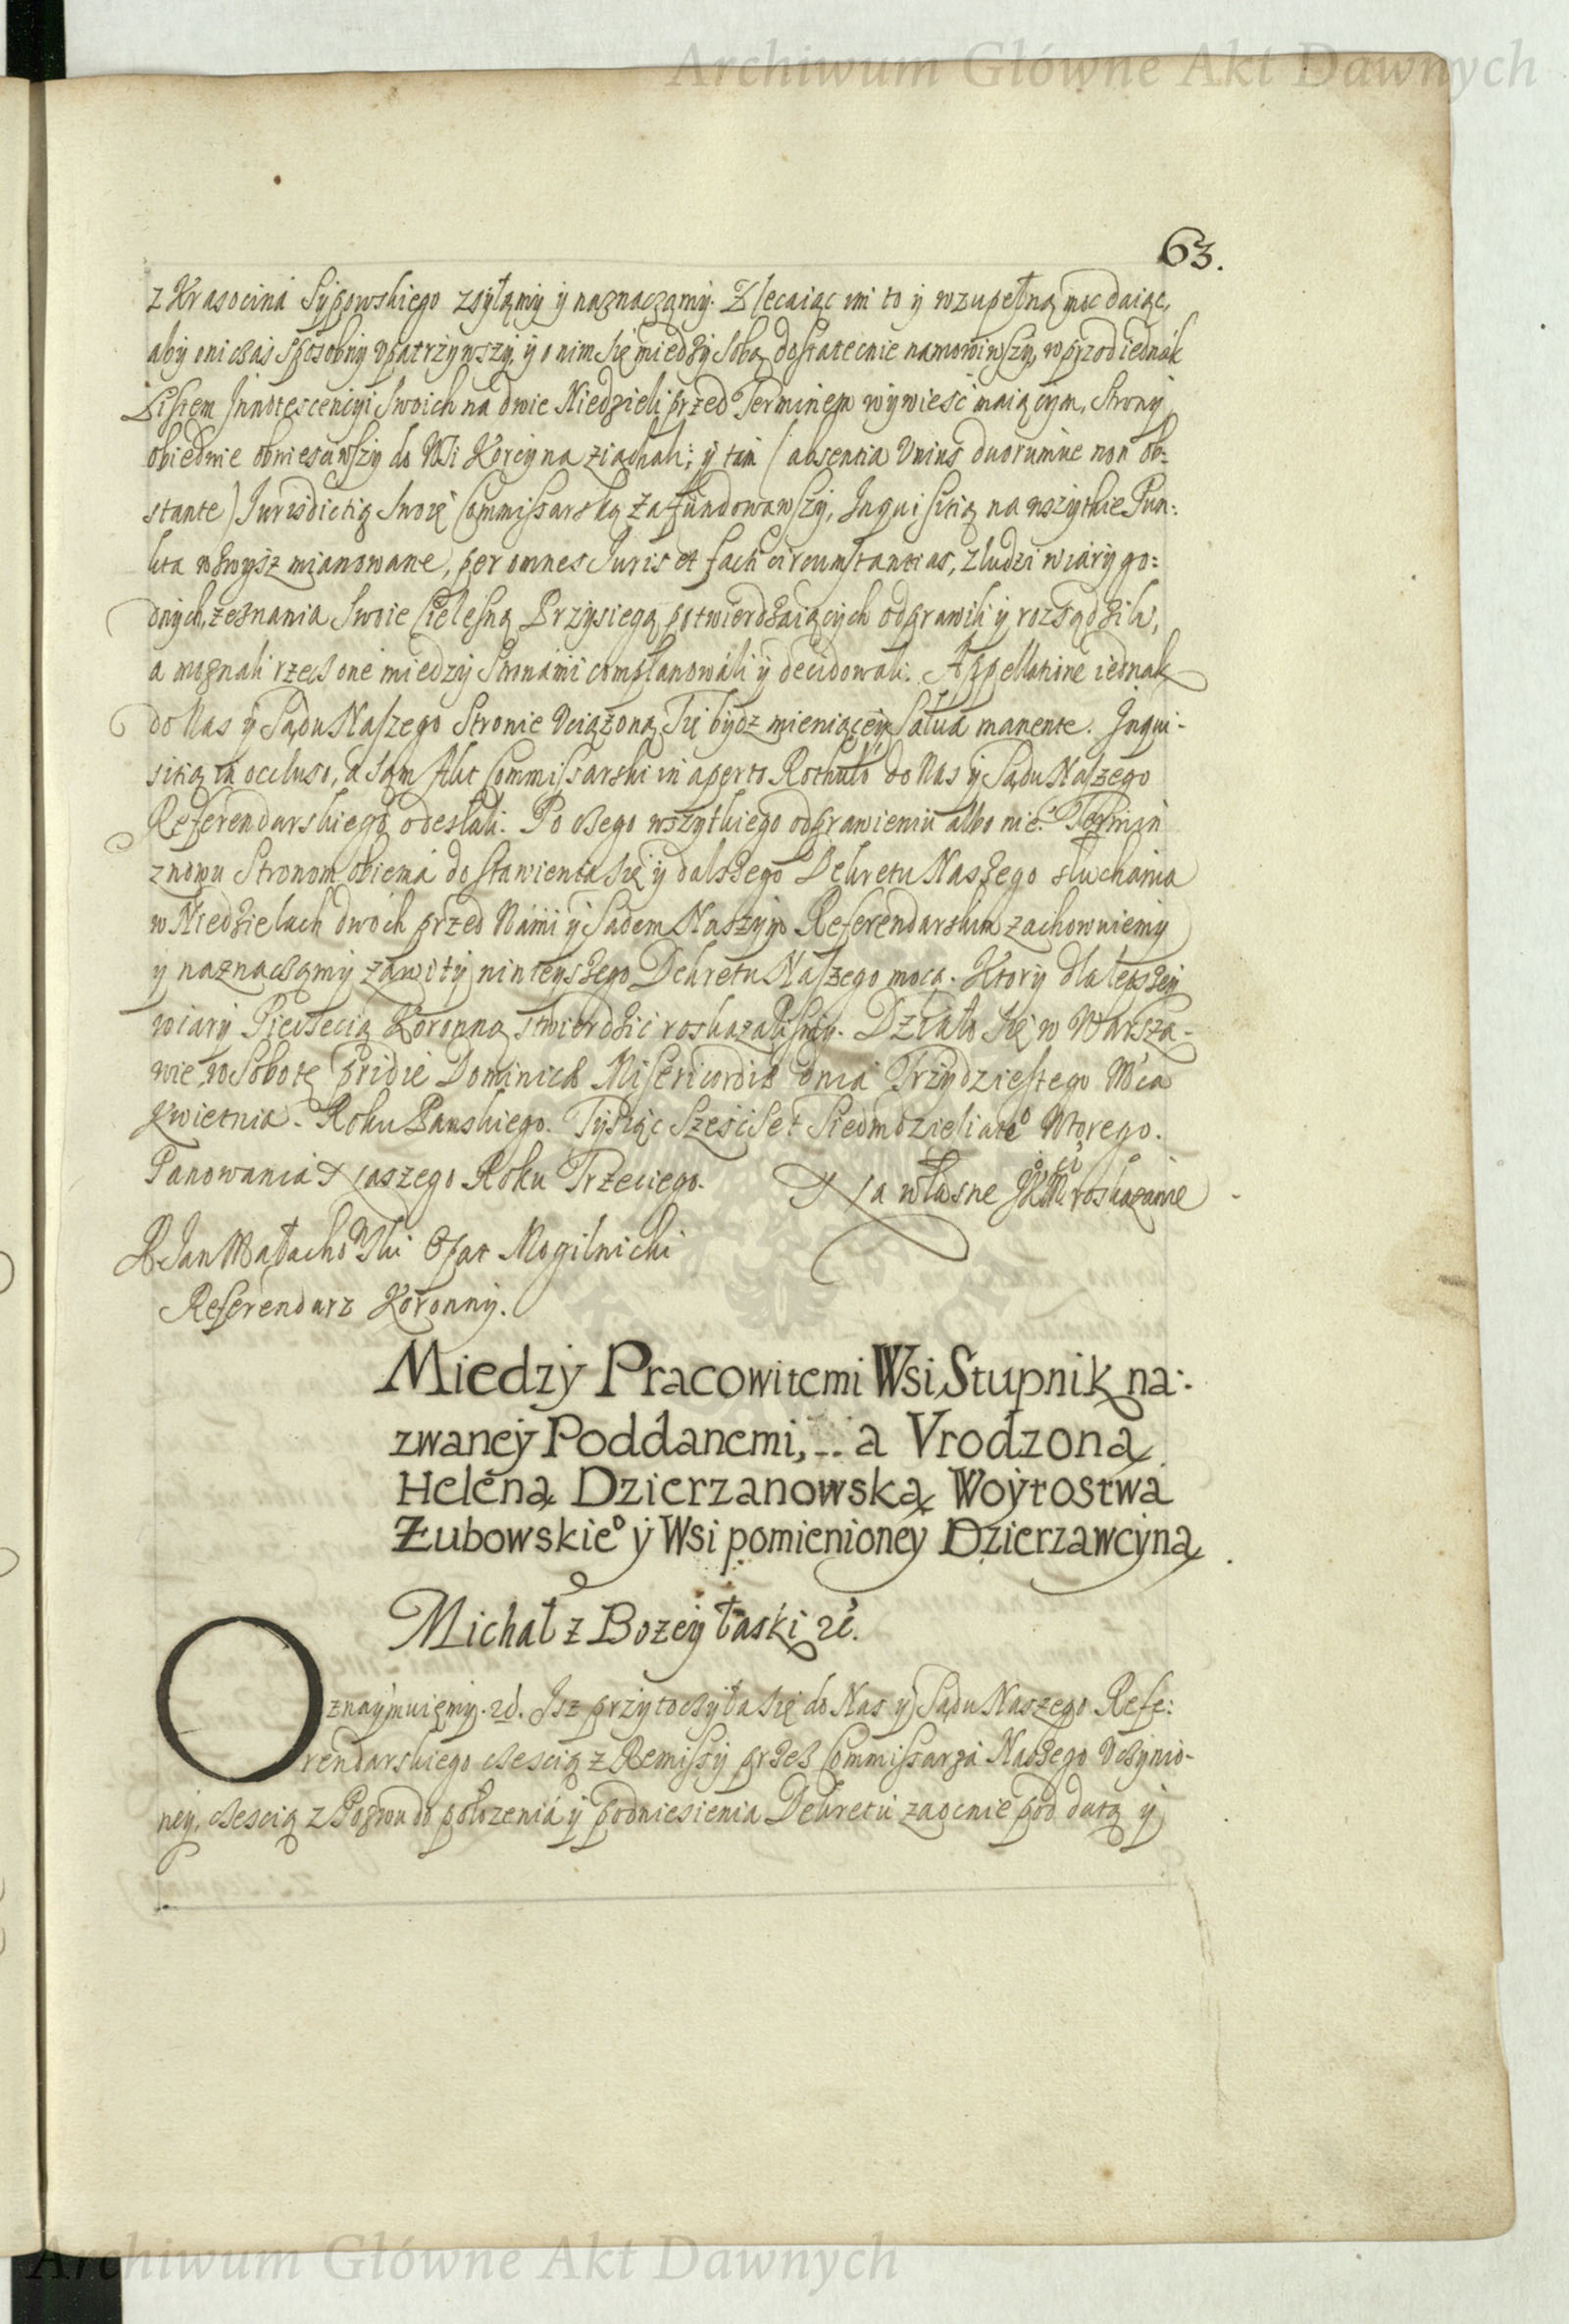 Archiwum Główne Akt Dawnych
63.
z Krasocina Sypowskiego zsyłamy ÿ naznaczamy. Zlecaiąc im to ÿ wzupełną moc daiąc,
aby oni czas sposobny vpatrzywszy, ÿ o nim się miedzy sobą dostatecnie namowiwszy, wprzod iednak
Listem Innotescencyi Swoich na dwie Niedzieli przed Terminem wywieść maiącym, Strony
obiedwie obwiesciwszy do Wsi Korcyna ziachali; ÿ tam (absentia Vnius duorumue non ob=
stante) Iurisdictią Swoię Commissarską zafundowawszy, Inquisitią na wszytkie Pun:
kta wzwysz mianowane, per omnes Iuris et facti circumstantias, z ludzi wiary go=
dnych, zeznania Swoie Cielesną Przysięgą potwierdzaiących odprawili y rozsądzili,
a mognali rzecz one miedzy Stronami complanowali ÿ decidowali. Appellatione iednak
do Nas ÿ Sądu Naszego Stronie Vciążoną Się bydz mieniącey Salua manente. Inqui-
sitią in occluso, a sam Akt Commissarski in aperto Rotulo do Nas ÿ Sądu Naszego
Referendarskiego odesłali. Po czego wszytkiego odprawieniu albo nie. Termin
znowu Stronom obiema do stawienia się ÿ dalszego Dekretu Naszego słuchania
w Niedzielach dwóch przed Nami ÿ Sądem Naszym Referendarskim zachowuiemy
y naznaczamy zawity ninieyszego Dekretu Naszego mocą. Ktory dla lepszey
wiary Pieczęcią Koronną stwierdzić roskazaliśmy. Działo się w Warsza-
wie w Sobotę pridie Dominicæ Misericordiæ dnia Trzydziestego Mca
Kwietnia. Roku Panskiego. Tysiąc Sześcset Siedmdziesiate° Wtorego.
Panowania Naszego Roku Trzeciego. Na własne JKMci roskazanie
X Jan Małachowski Opat Mogilnicki
Referendarz Koronny.
Miedzy Pracowitemi Wsi Stupnik na:
zwaney Poddanemi, _ _ a Vrodzoną
Heleną Dzierzanowską Woytostwa
Łubowskie° ÿ Wsi pomienioney Dzierzawcyną.
Michał z Bozey łaski &c.
Oznaymuiemy. &c. Isz przytoczyła się do Nas ÿ Sądu Naszego Refe:
rendarskiego czescią z Remissy przez Commissarza Naszego Vczynio-
ney, czescią z Pozwu do położenia ÿ podniesienia Dekretu zaocnie pod datą ÿ
Archiwum Główne Akt Dawnych